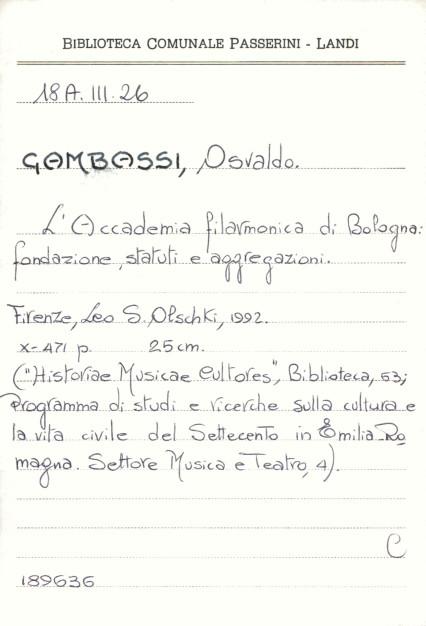 BIBLIOTECA COMUNALE PASSERINI - LANDI
18A.III.26
GAMBASSI, Osvaldo.
L'Accademia filarmonica di Bologna:
fondazione, statuti e aggregazioni.
Firenze, Leo S. Olschki, 1992.
X-471 p. 25 cm.
("Historiae Musicae Cultores", Biblioteca, 63;
Programma di studi e ricerche sulla cultura e
la vita civile del Settecento in Emilia Ro
magna. Settore Musica e Teatro, 4).
C
189636